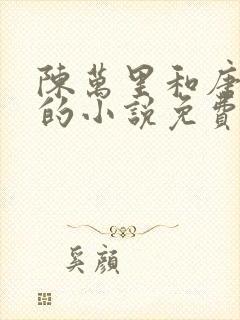 陳萬里和唐
的小說免費
奚顏